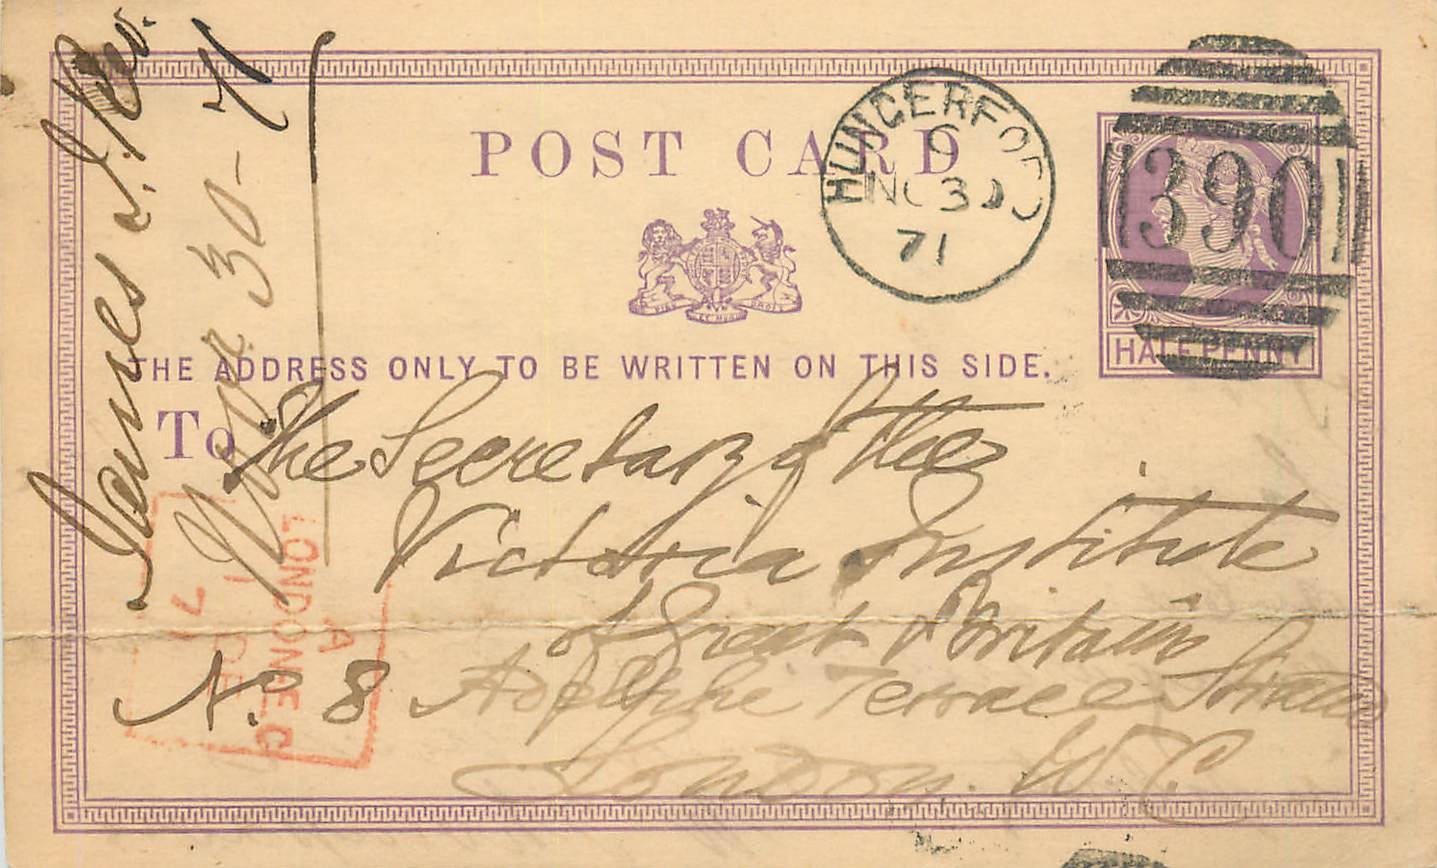 POST CARD
HUNGERFORD
C
NO 30
71
390
HALF PENNY
THE ADDRESS ONLY TO BE WRITTEN ON THIS SIDE.
To The Secretary of the
Victoria Institute
of Great Britain
No. 8 Adelphi Terrace Strand
London. W. C.
James
30 - 71
LONDON E.C
A
1 DE
71